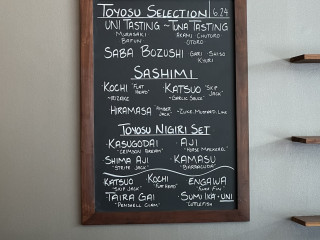 TOYOSU SELECTION 6.24
UNI TASTING ~ TUNA TASTING
MURASAKI AKAMI CHUTORO
BAFUN OTORO
SABA BOZUSHI GARI SHISO
KYURI
SASHIMI
KOCHI "FLAT HEAD" KATSUO "SKIP JACK"
GARLIC SAUCE
HIRAMASA "AMBER JACK" -ZUKE, MUSTARD,
TOYOSU NIGIRI SET
KASUGODAI AJI
"CRIMSON BREAM" "HORSE MACKEREL"
SHIMA AJI KAMASU
"STRIPE JACK" "BARRACUDA"
KATSUO KOCHI ENGAWA
"SKIP JACK" "FLAT HEAD" "FLUKE FIN"
TAIRA GAI SUMI IKA + UNI
"PENSHELL CLAM" "CUTTLEFISH"